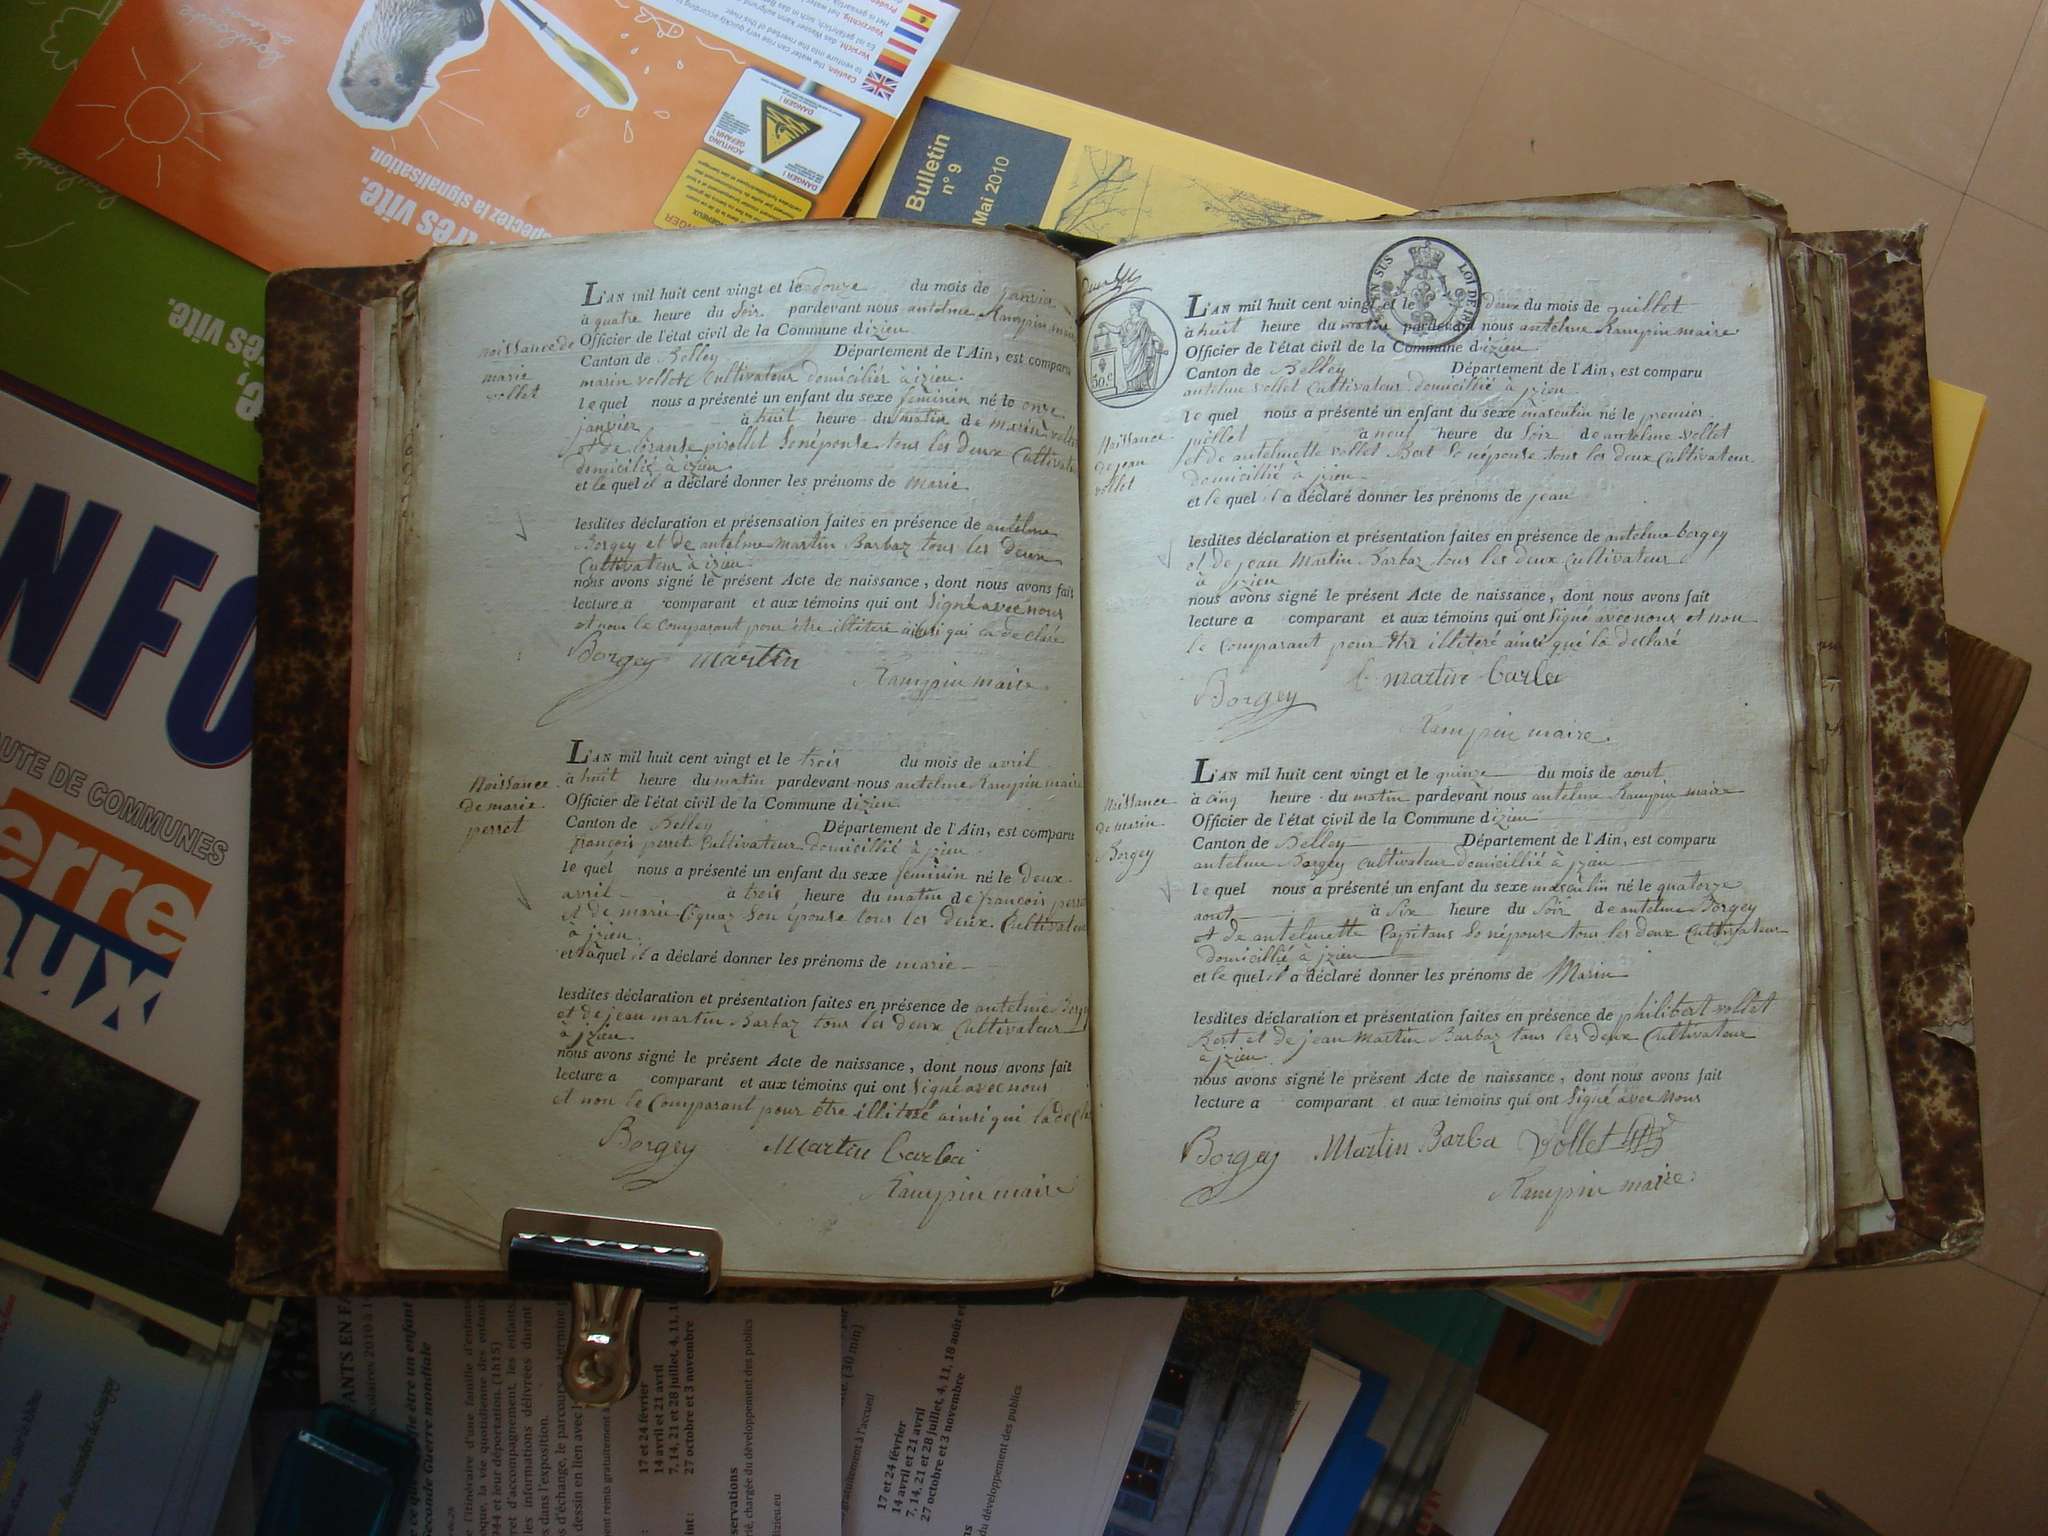 L'AN mil huit cent vingt et le douze du mois de janvier
à quatre heure du soir pardevant nous antelme Rampin maire
Officier de l'état civil de la Commune d izieu
Canton de Belley Département de l'Ain, est comparu
marin vollet Cultivateur domicilier à izieu.
le quel nous a présenté un enfant du sexe feminin né le onze
janvier à huit heure du matin de marin vollet
et de pirollet sonépouse tous les deux Cultivateur
domicilié à izieu
et le quel il a déclaré donner les prénoms de Marie
lesdites déclaration et présensation faites en présence de antelme
Borgey et de antelme Martin Barbaz tous les deux
Cultivateur à izieu
nous avons signé le présent Acte de naissance, dont nous avons fait
lecture a comparant et aux témoins qui ont Signé avec nous
et non le Comparant pour être illiteré ainsi qui la declaré
Borgey Martin
Rampin maire
naissance de
marie
vollet
L'AN mil huit cent vingt et le trois du mois de avril
à huit heure du matin pardevant nous antelme Rampin maire
Officier de l'état civil de la Commune d izieu
Canton de Belley Département de l'Ain, est comparu
françois perret Cultivateur domicillié à jzieu
le quel nous a présenté un enfant du sexe feminin né le deux
avril à trois heure du matin de françois perret
et de marie son épouse tous les deux Cultivateur
à jzieu
et laquel il a déclaré donner les prénoms de marie
lesdites déclaration et présentation faites en présence de antelme Borgey
et de jean martin Barbaz tous les deux Cultivateur
à jzieu.
nous avons signé le présent Acte de naissance, dont nous avons fait
lecture a comparant et aux témoins qui ont Signé avec nous
et non le Comparant pour être illiteré ainsi qui la declaré
Borgey Martin barba
Rampin maire
Naissance
de marie
perret
L'AN mil huit cent vingt et le deux du mois de juillet
à huit heure du matin pardevant nous antelme Rampin maire
Officier de l'état civil de la Commune d izieu
Canton de Belley Département de l'Ain, est comparu
antelme vollet Cultivateur domicillié à jzieu
le quel nous a présenté un enfant du sexe masculin né le premier
juillet à neuf heure du Soir de antelme vollet
et de antelmette vollet Bert sonépouse tous les deux Cultivateur
domicillié à jzieu
et le quel il a déclaré donner les prénoms de jean
lesdites déclaration et présentation faites en présence de antelme borgey
et de jean Martin Barbaz tous les deux cultivateur
à jzieu
nous avons signé le présent Acte de naissance, dont nous avons fait
lecture a comparant et aux témoins qui ont Signé avec nous et non
le Comparant pour être illiteré ainsi qui la declaré
Borgey martin barba
Rampin maire.
Naissance
de jean
vollet
50 c.
LOI DE
L'AN mil huit cent vingt et le quinze du mois de aout
à cinq heure du matin pardevant nous antelme Rampin maire
Officier de l'état civil de la Commune d izieu
Canton de Belley Département de l'Ain, est comparu
antelme Borgey Cultivateur domicillié à jzieu
le quel nous a présenté un enfant du sexe masculin né le quatorze
aout à Six heure du Soir de antelme Borgey
et de antelmette Capitans sonépouse tous les deux Cultivateur
domicillié à jzieu
et le quel il a déclaré donner les prénoms de Marin
lesdites déclaration et présentation faites en présence de philibert vollet
Bert et de jean Martin Barbaz tous les deux Cultivateur
à jzieu
nous avons signé le présent Acte de naissance, dont nous avons fait
lecture a comparant et aux témoins qui ont Signé avec Nous
Borgey Martin Barba Vollet
Rampin maire.
Naissance
de marin
Borgey
Bulletin
n° 9
Mai 2010
très vite.
spectez la signalisation.
DANGER !
ACHTUNG
GEFAHR !
très vite.
INFO
AUTE DE COMMUNES
erre
aux
17 et 24 février
14 avril et 21 avril
7, 14, 21 et 28 juillet, 4, 11, 18
27 octobre et 3 novembre
17 et 24 février
14 avril et 21 avril
7, 14, 21 et 28 juillet, 4, 11, 18 août et
27 octobre et 3 novembre
du développement des publics
Seconde Guerre mondiale